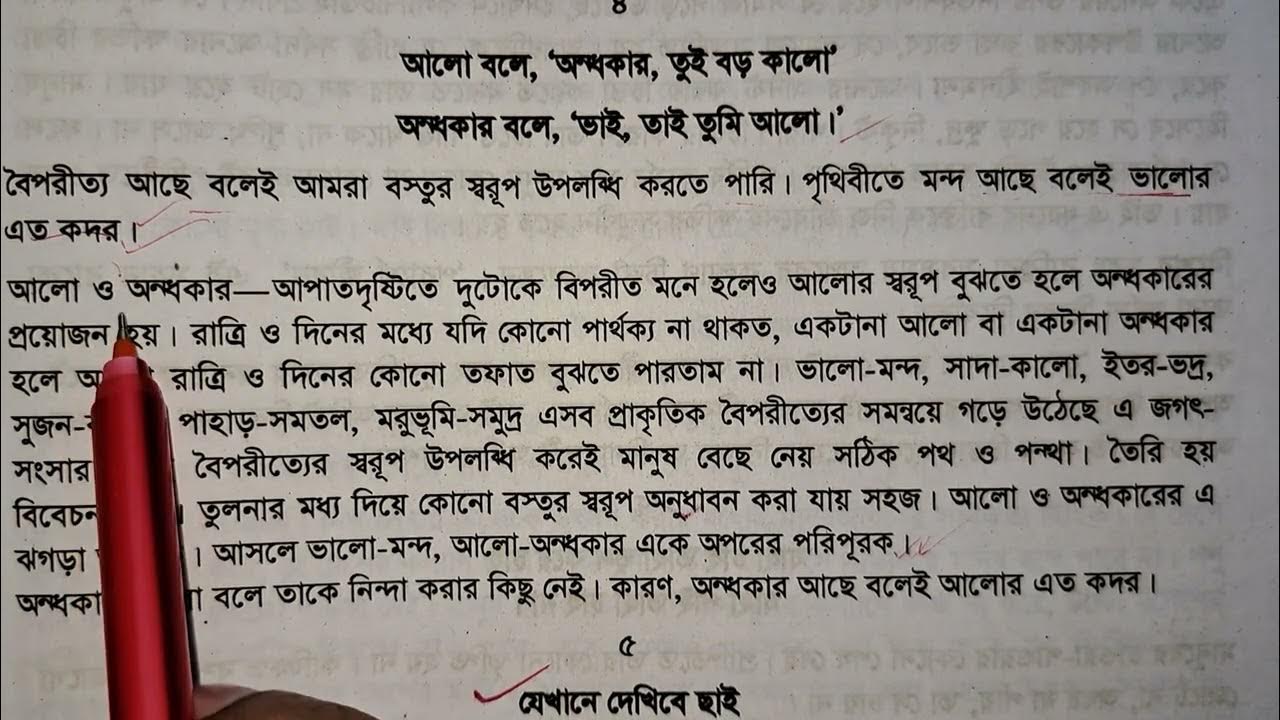 ৪
আলো বলে, ‘অন্ধকার, তুই বড় কালো’
অন্ধকার বলে, ‘ভাই, তাই তুমি আলো।’
বৈপরীত্য আছে বলেই আমরা বস্তুর স্বরূপ উপলব্ধি করতে পারি। পৃথিবীতে মন্দ আছে বলেই ভালোর
এত কদর।
আলো ও অন্ধকার—আপাতদৃষ্টিতে দুটোকে বিপরীত মনে হলেও আলোর স্বরূপ বুঝতে হলে অন্ধকারের
প্রয়োজন হয়। রাত্রি ও দিনের মধ্যে যদি কোনো পার্থক্য না থাকত, একটানা আলো বা একটানা অন্ধকার
হলে রাত্রি ও দিনের কোনো তফাত বুঝতে পারতাম না। ভালো-মন্দ, সাদা-কালো, ইতর-ভদ্র,
সুজন- পাহাড়-সমতল, মরুভূমি-সমুদ্র এসব প্রাকৃতিক বৈপরীত্যের সমন্বয়ে গড়ে উঠেছে এ জগৎ-
সংসার বৈপরীত্যের স্বরূপ উপলব্ধি করেই মানুষ বেছে নেয় সঠিক পথ ও পন্থা। তৈরি হয়
তুলনার মধ্য দিয়ে কোনো বস্তুর স্বরূপ অনুধাবন করা যায় সহজ। আলো ও অন্ধকারের এ
ঝগড়া । আসলে ভালো-মন্দ, আলো-অন্ধকার একে অপরের পরিপূরক।
বলে তাকে নিন্দা করার কিছু নেই। কারণ, অন্ধকার আছে বলেই আলোর এত কদর।
৫
যেখানে দেখিবে ছাই